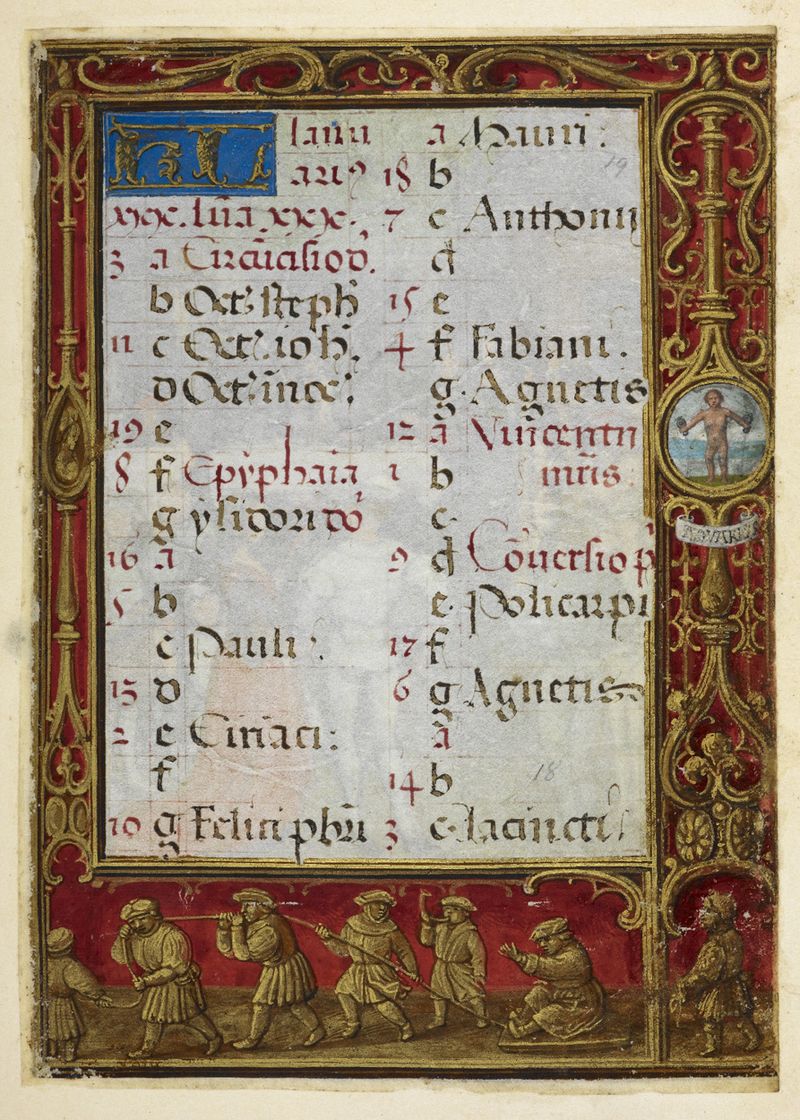 KL Ianu
ariꝰ
xxxc. lũa xxx.
3 a Circũcisio d.
b Oct. steph
11 c Oct. ioh.
d Oct. inoc.
19 e
8 f Epyphaïa
g ysidori
16 a
5 b
c Pauli
13 d
2 e Ciriaci:
f
10 g Felici
a Mauri:
18 b
19
7 c Anthonij
d
15 e
4 f Fabiani.
g. Agnetis
12 a Vincentii
1 b
c.
9 d Cõuersio p
e. policarpi
17 f
6 g Agnetis
a
14 b
18
3 c. Iacincti
AQVARIVS